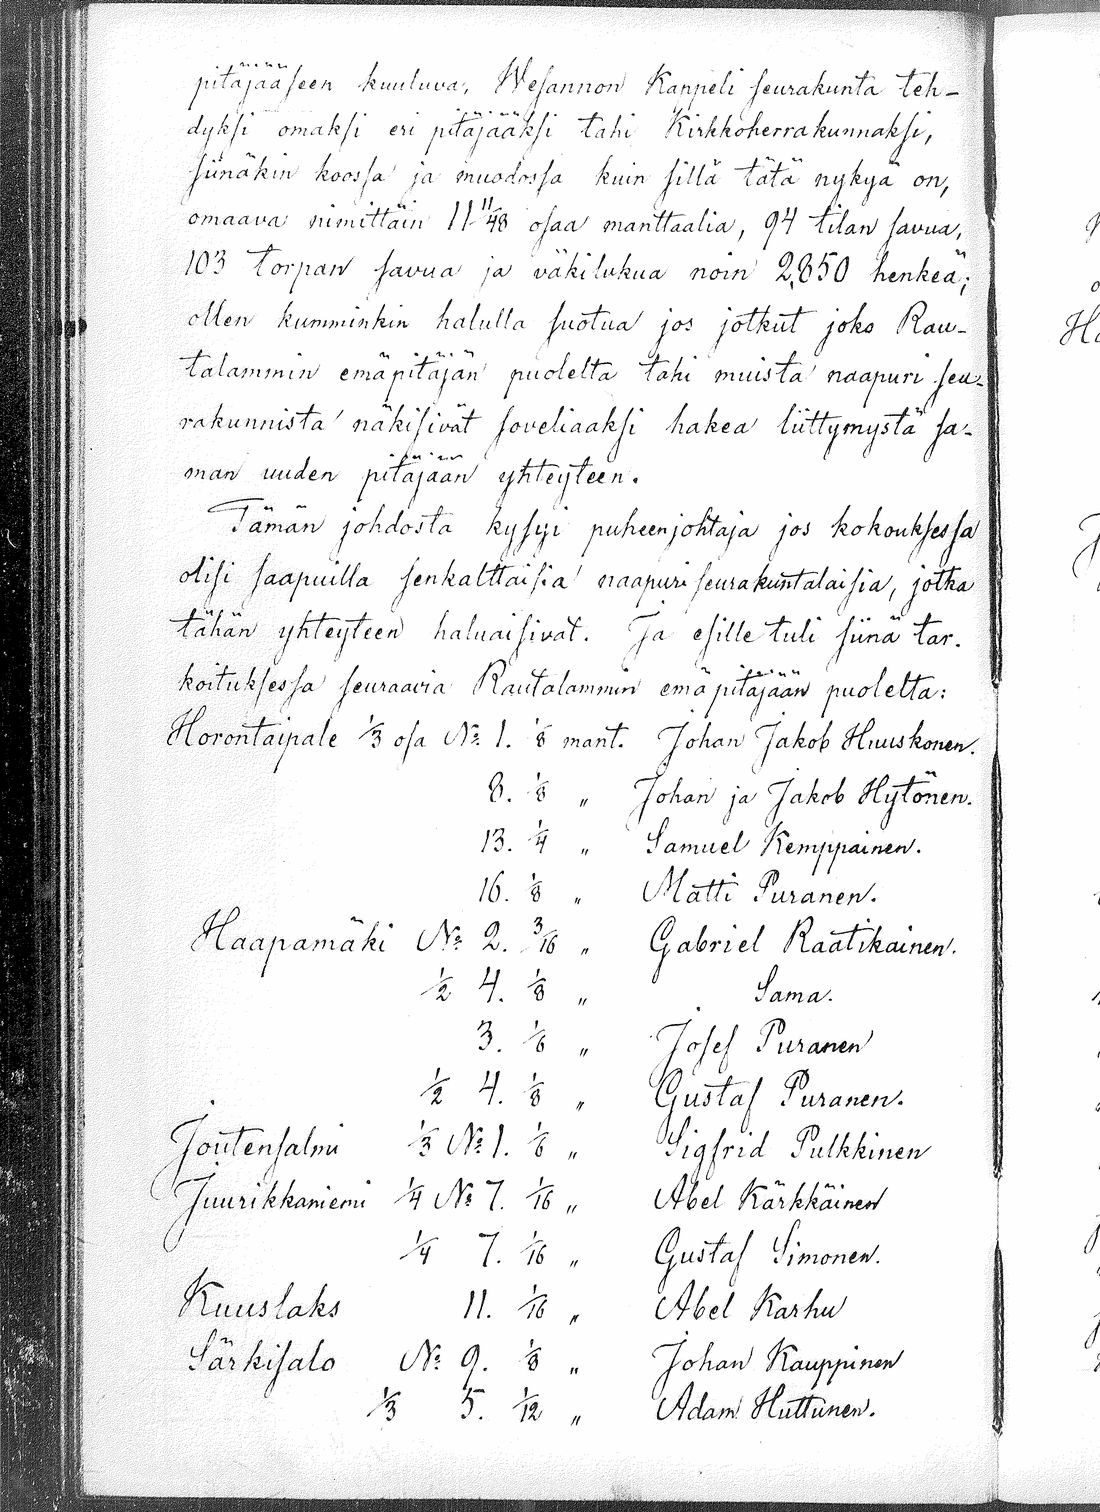 pitäjääseen kuuluva, Wesannon Kappeli seurakunta teh-
dyksi omaksi eri pitäjääksi tahi Kirkkoherrakunnaksi,
siinäkin koossa ja muodossa kuin sillä tätä nykyä on,
omaava nimittäin 11 11/48 osaa manttaalia, 94 tilan savua,
103 torpan savua ja väkilukua noin 2,850 henkeä;
ollen kumminkin halulla suotua jos jotkut joko Rau-
talammin emäpitäjän puolelta tahi muista naapuri seu-
rakunnista näkisivät soveliaaksi hakea liittymystä sa-
man uuden pitäjään yhteyteen.
Tämän johdosta kysyi puheenjohtaja jos kokouksessa
olisi saapuilla senkalttaisia naapuri seurakuntalaisia, jotka
tähän yhteyteen haluaisivat. Ja esille tuli siinä tar-
koituksessa seuraavia Rautalammin emäpitäjään puolelta:
Horontaipale 1/3 osa No 1. 1/8 mant. Johan Jakob Huuskonen.
8. 1/8 " Johan ja Jakob Hytönen.
13. 1/4 " Samuel Kemppainen.
16. 1/8 " Matti Puranen.
Haapamäki No 2. 3/16 " Gabriel Raatikainen.
1/2 4. 1/8 " Sama.
3. 1/6 " Josef Puranen
1/2 4. 1/8 " Gustaf Puranen.
Joutensalmi 1/3 No 1. 1/6 " Sigfrid Pulkkinen
Juurikkaniemi 1/4 No 7. 1/16 " Abel Kärkkäinen
1/4 7. 1/16 " Gustaf Simonen.
Kuuslaks 11. 1/16 " Abel Karhu
Särkisalo No 9. 1/8 " Johan Kauppinen
1/3 5. 1/12 " Adam Huttunen.